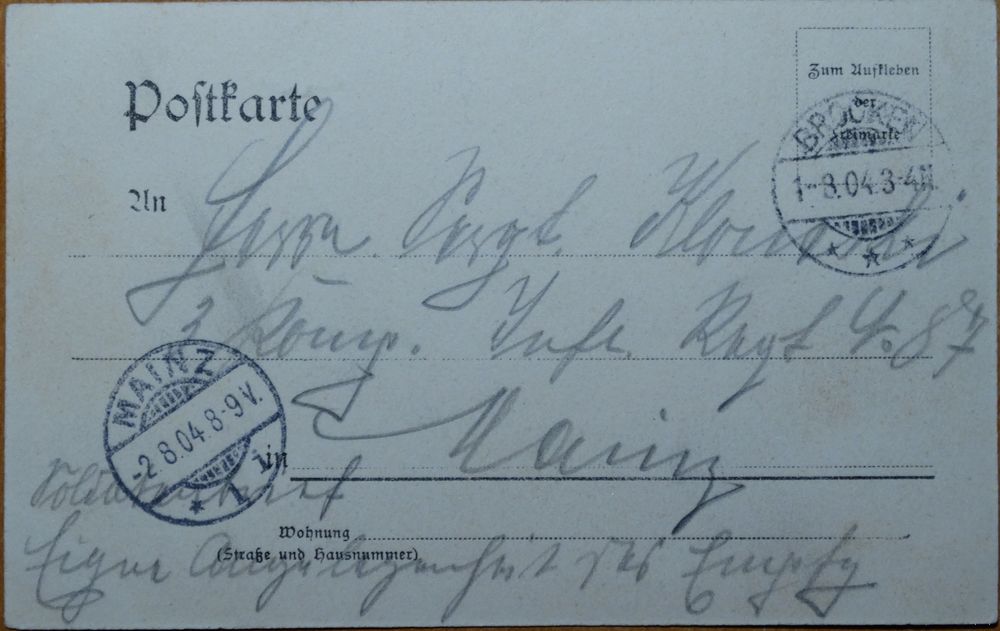 Postkarte
Zum Aufkleben
der
Freimarke
BROCKEN
1.-8.04.3-4N.
An Herrn Sergt.
3 Komp. Inf. Regt N. 87
MAINZ
-2.8.04.8-9V.
* 1 i
in Mainz
Soldatenbrief
Wohnung
(Straße und Hausnummer)
Eigne Angelegenheit des Empfg